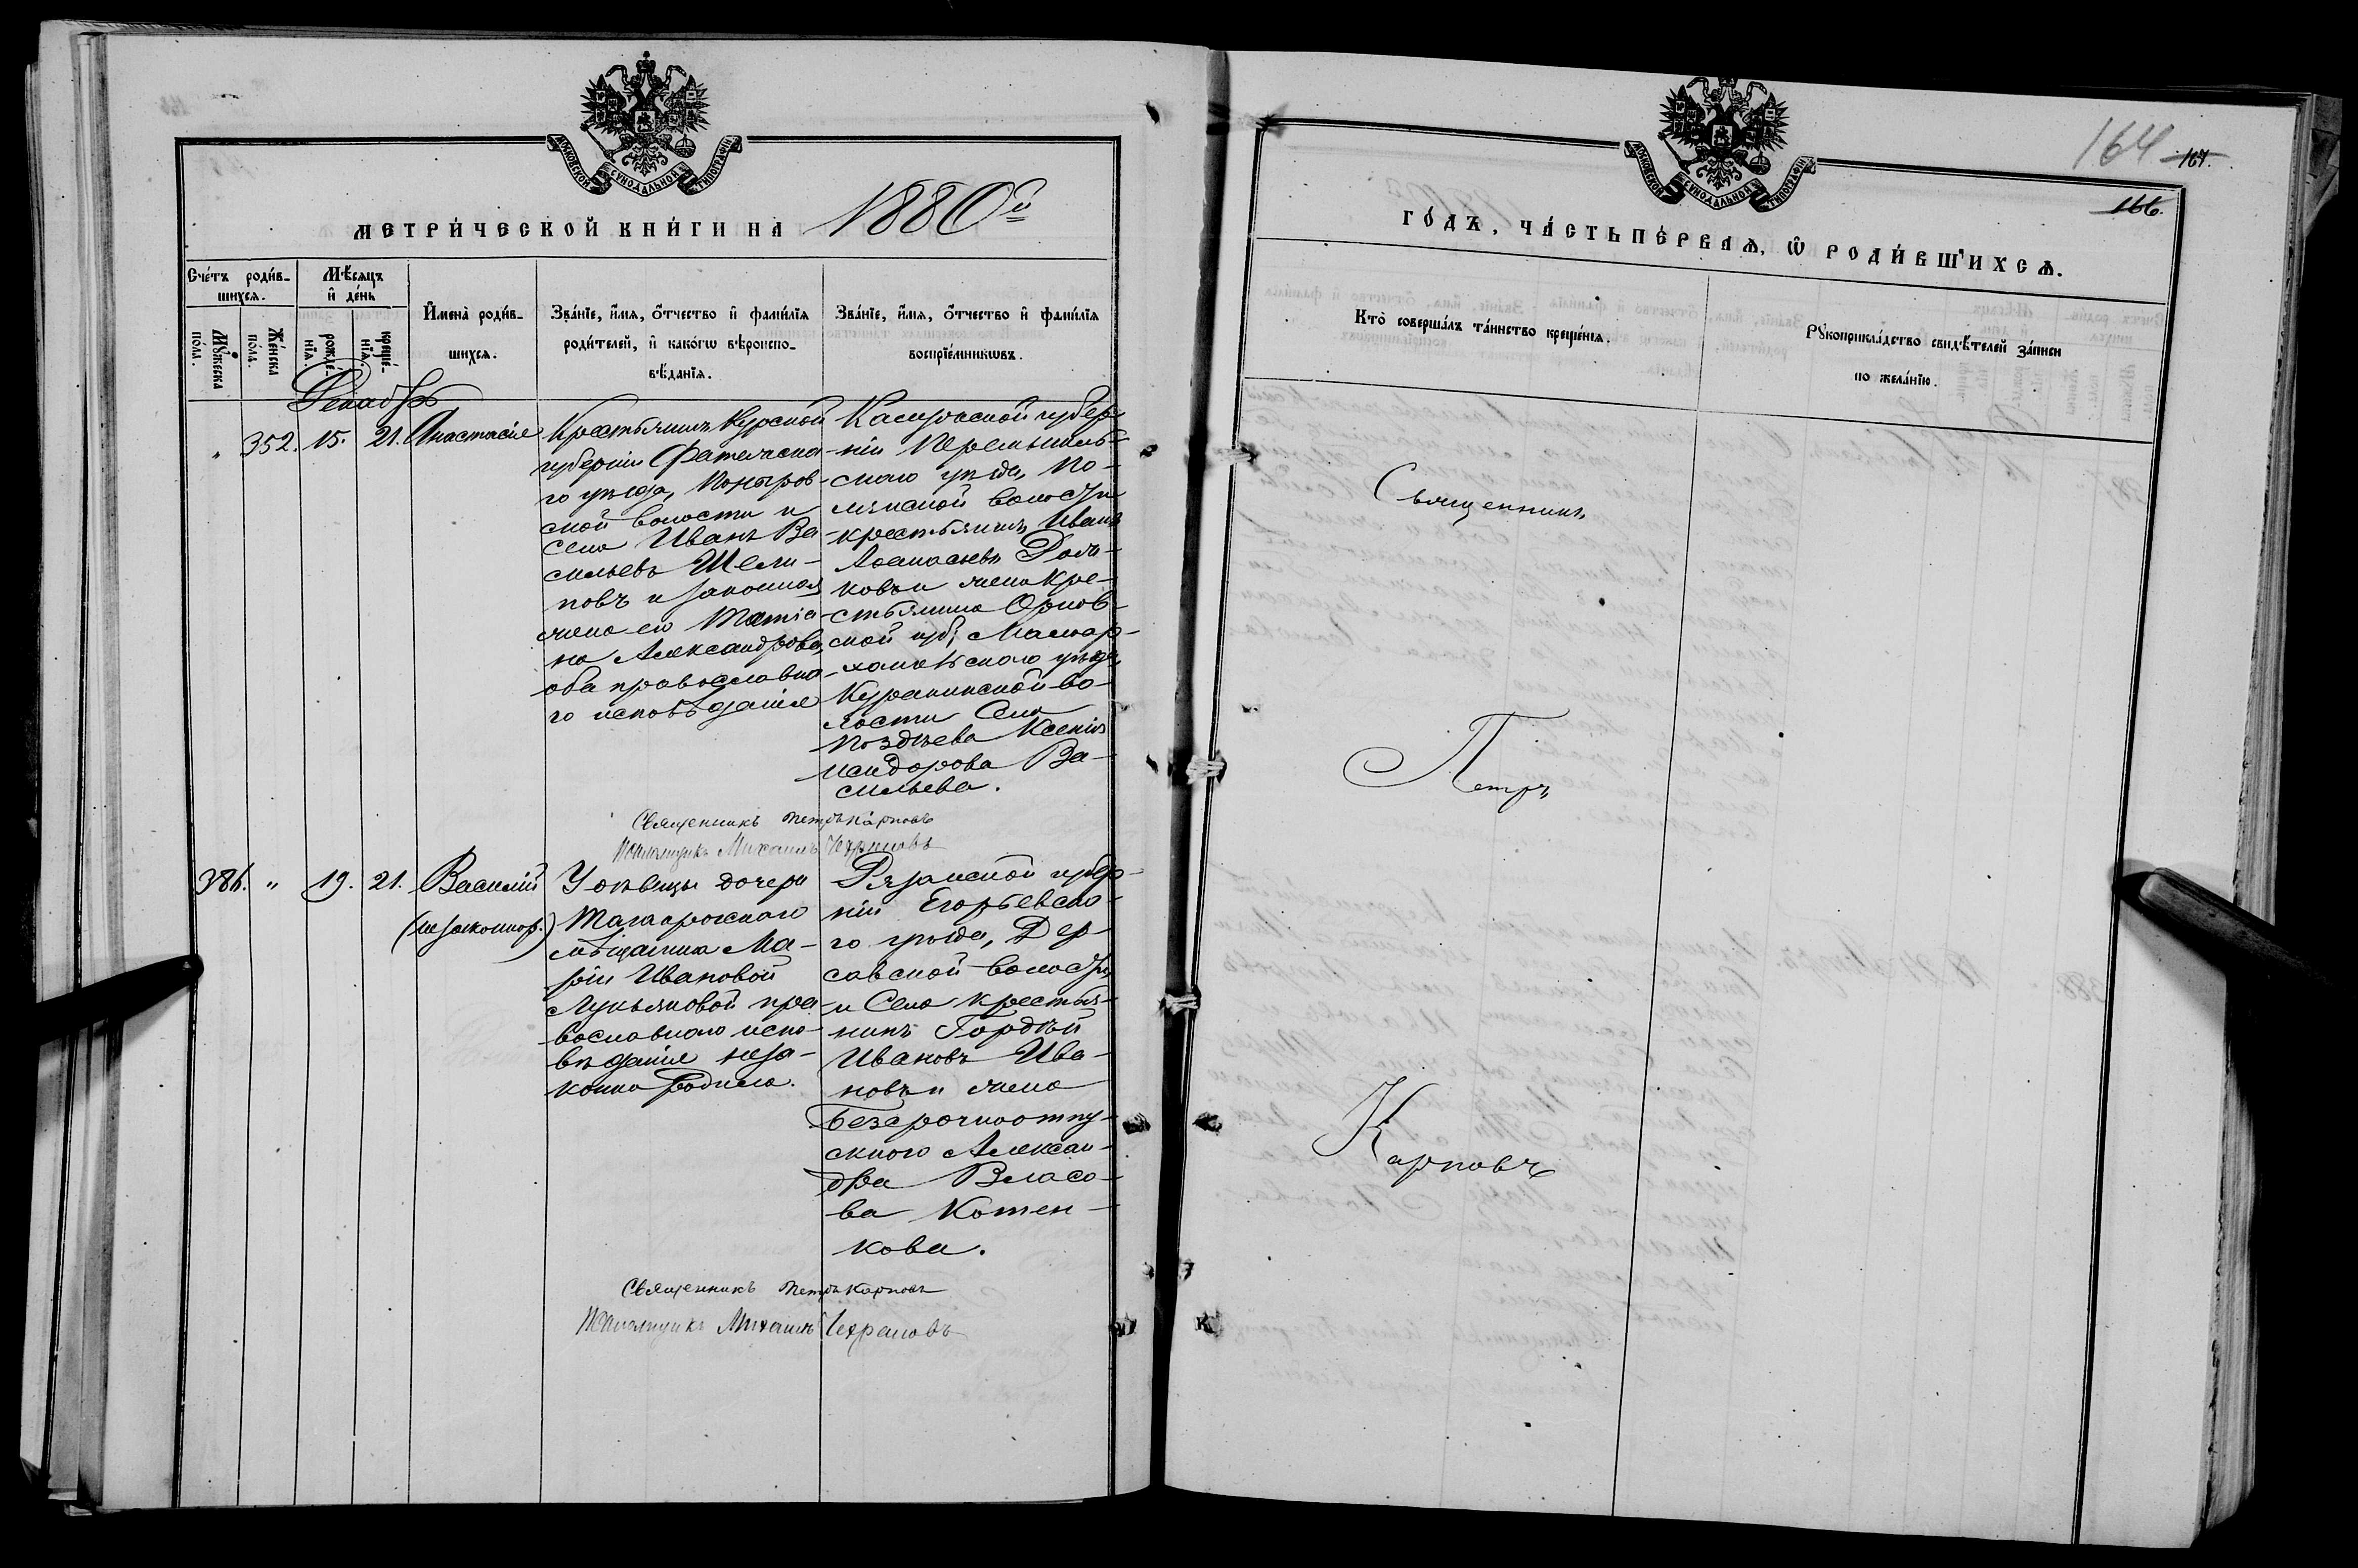 МОСКОВСКОЙ СУНОДАЛЬНОЙ ТИПОГРАФІИ
МЕТРИ́ЧЕСКОЙ КНИ́ГИ НА 1880й
Сче́тъ роди́в-
шихся.
Мѣ́сяцъ
и҆ де́нь
Му́жеска
по́ла.
Же́нска
по́лъ.
рожде́-
нїѧ.
креще́-
нїѧ.
И҆мена̀ роди́в-
шихся.
Зва́нїе, и҆́мѧ, о҆́тчество и҆ фами́лїѧ
роди́телей, и҆ како́гѡ вѣроиспо-
вѣ́данїѧ.
Зва́нїе, и҆́мѧ, о҆́тчество и҆ фами́лїѧ
воспрїе́мникѡвъ.
Декабрь
" 352. 15. 21. Анастасія
Крестьянинъ Курской
губерніи Фатежска
го уѣзда, Поныров-
ской волости и
села Иванъ Ва
сильевъ Шели-
повъ и законная
жена его Татіа
на Александрова,
оба православна-
го исповѣданія
Калужской губер-
ніи Перемышль-
скаго уѣзда,
волости
крестьянинъ Иванъ
Афанасьевъ
ковъ и жена кре-
стьянина Орлов-
ской губ; Малоар-
хангельскаго уѣзда,
Куракинской во-
лости Села
Поздѣева Ксенія
Исидорова Ва-
сильева.
Священникъ Петръ Карповъ
Псаломщикъ Михаилъ
386. " 19. 21. Василій
(незаконнор.)
У дѣвицы дочери
Таганрогскаго
мѣщанина Ма-
ріи Ивановой
Лукьяновой пра
вославнаго испо-
вѣданія неза-
конно родила.
Рязанской губер-
ніи Егорьевска-
го уѣзда, Дер-
савской волости
и Села крестья-
нинъ Гордѣй
Ивановъ Ива-
новъ и жена
Безсрочноотпу-
скнаго Алексан-
дра Власо-
ва Котен-
кова.
Священникъ Петръ Карповъ
Псаломщикъ Михаилъ
МОСКОВСКОЙ СУНОДАЛЬНОЙ ТИПОГРАФІИ
164 167.
166.
ГО́ДЪ, ЧА́СТЬ ПЕ́РВАѦ, Ѡ҆ РОДИ́ВШИХСѦ.
Кто̀ соверша́лъ та́инство креще́нїѧ.
Рꙋкоприкла́дство свидѣ́телей за́писи
по жела́нїю.
Священникъ
Петръ
Карповъ